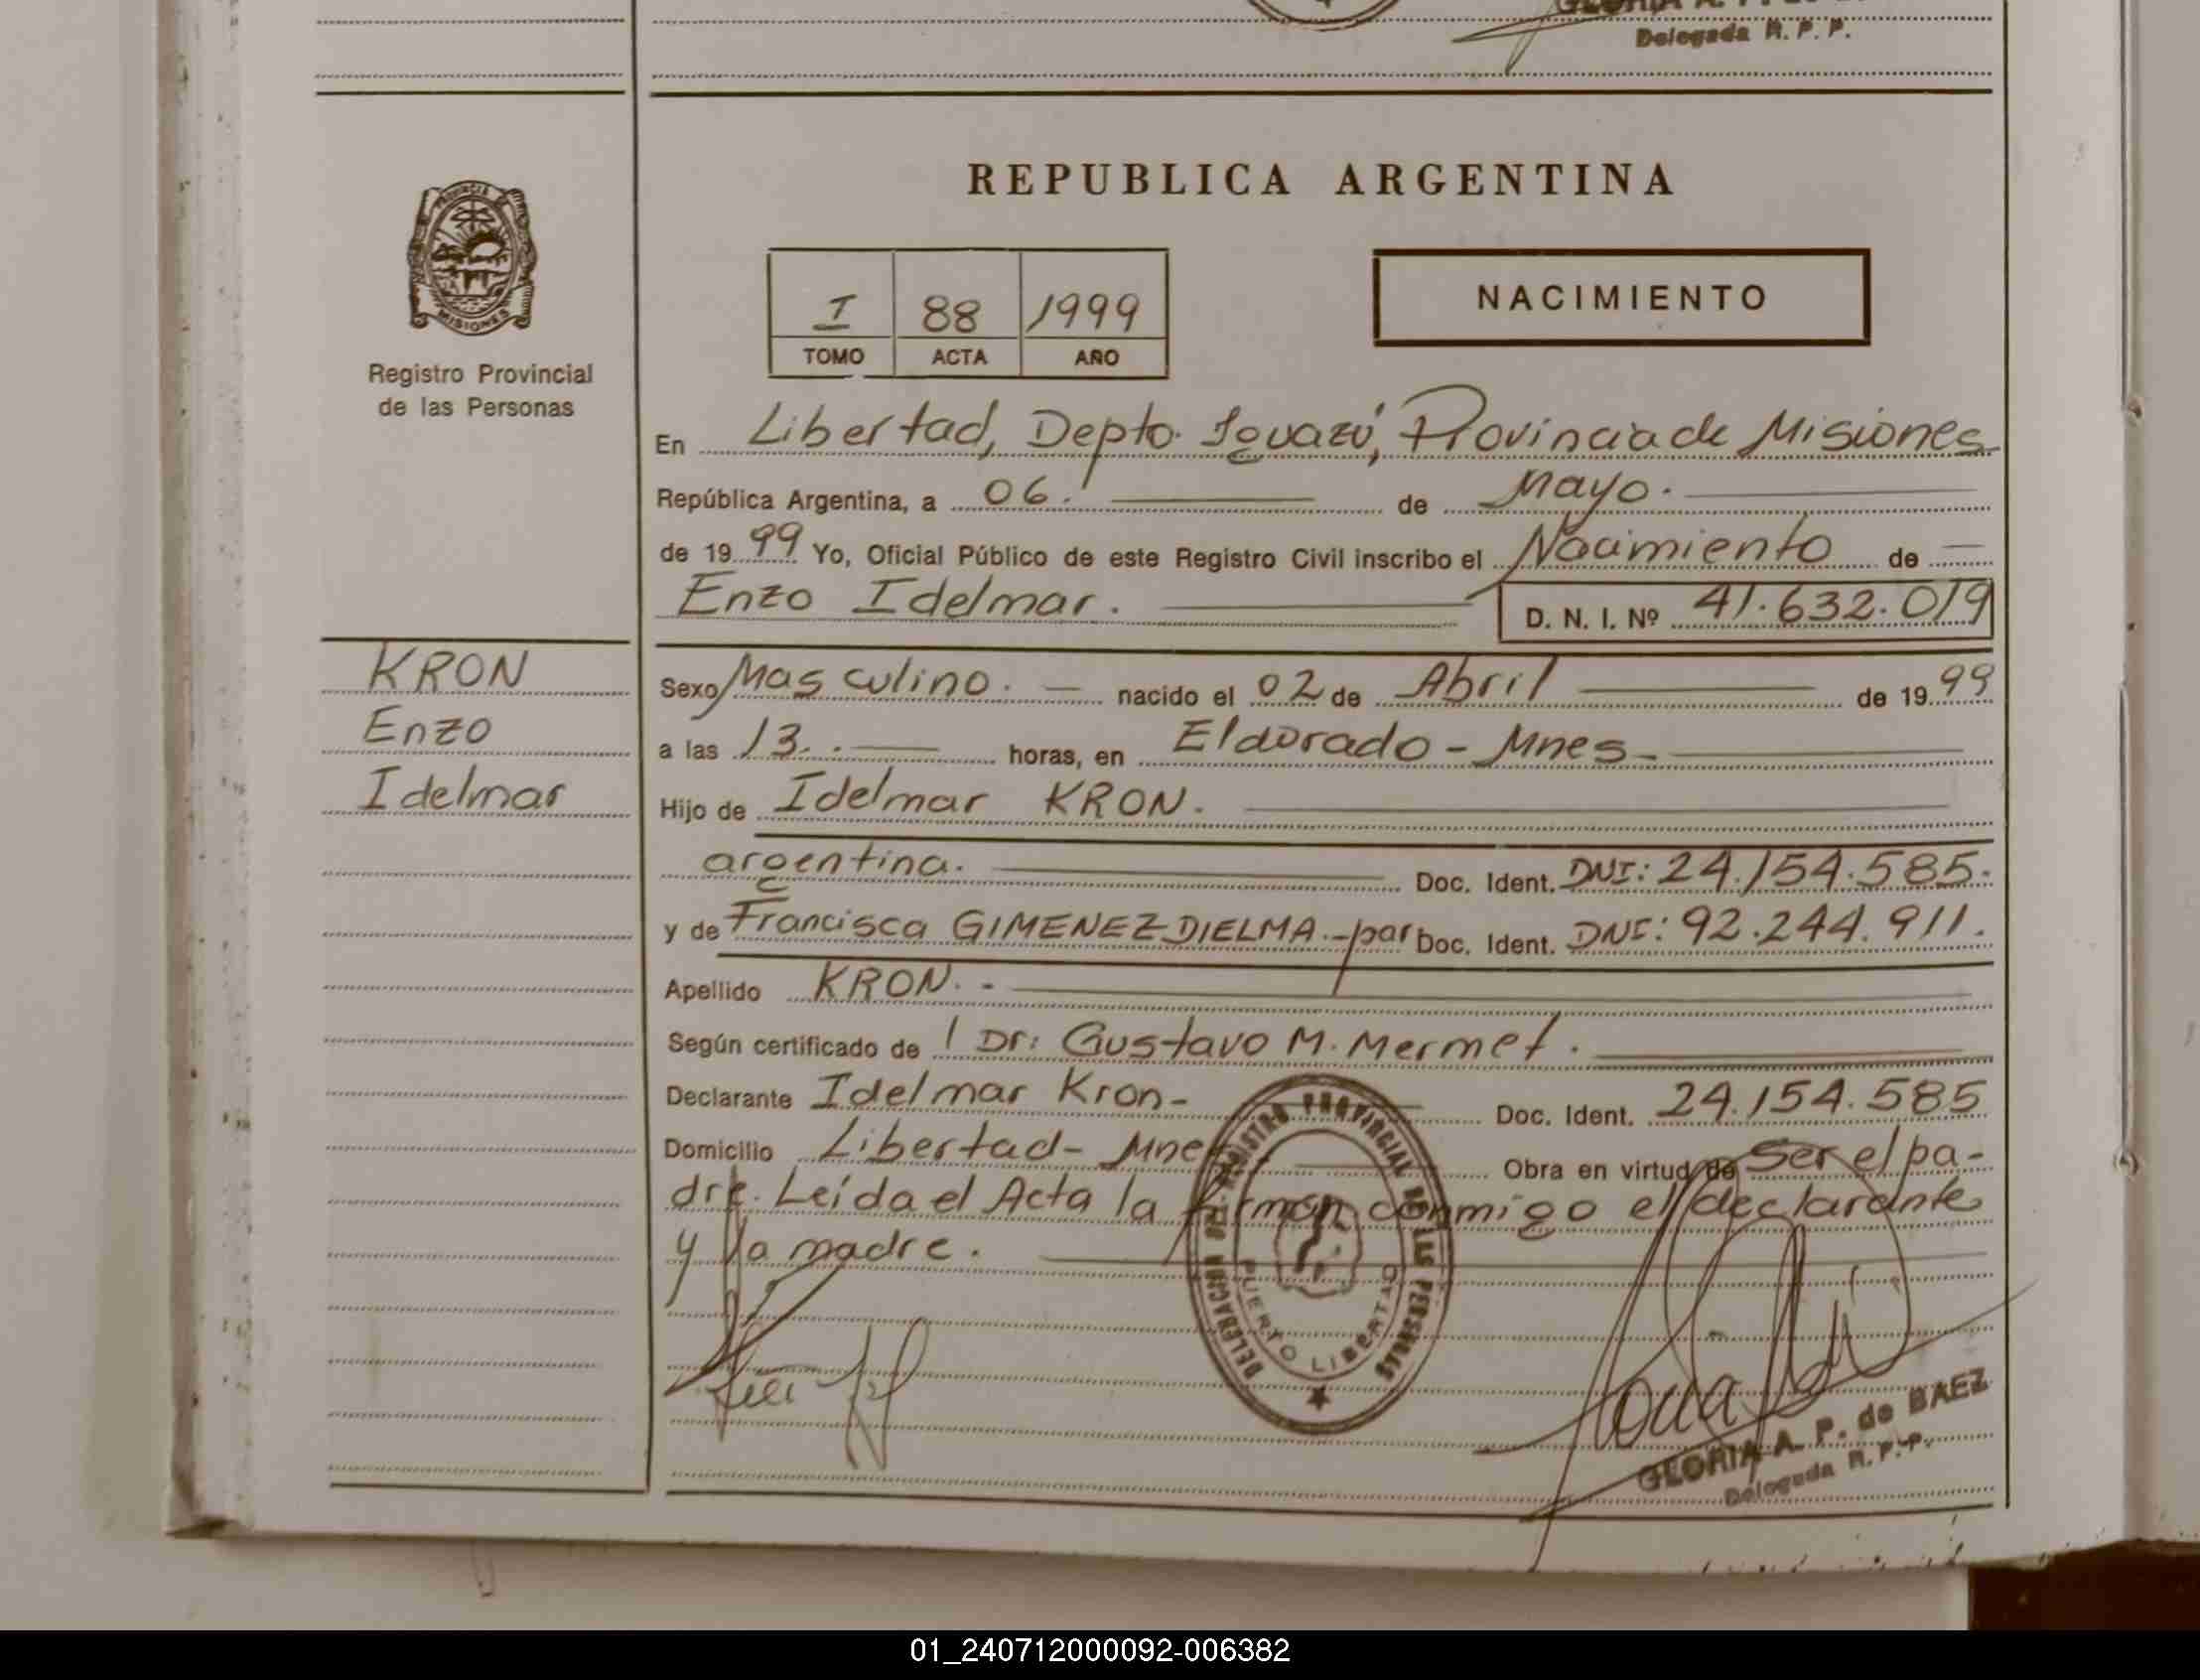 Delegada R. P. P.
PROVINCIA DE
MISIONES
Registro Provincial
de las Personas
REPUBLICA ARGENTINA
I 88 1999
TOMO ACTA AÑO
NACIMIENTO
En Libertad, Depto. Iguazú, Provincia de Misiones
República Argentina, a 06. de Mayo.
de 1999 Yo, Oficial Público de este Registro Civil inscribo el Nacimiento de
Enzo Idelmar.
D. N. I. Nº 41.632.019
KRON
Enzo
Idelmar
Sexo Masculino. nacido el 02 de Abril de 1999
a las 13. horas, en Eldorado - Mnes
Hijo de Idelmar KRON.
argentina. Doc. Ident. DNI: 24.154.585.
y de Francisca GIMENEZ DIELMA.- par Doc. Ident. DNI: 92.244.911.
Apellido KRON. -
Según certificado del Dr: Gustavo M. Mermet.
Declarante Idelmar Kron- Doc. Ident. 24.154.585
Domicilio Libertad- Mnes Obra en virtud de Ser el pa-
dre. Leída el Acta la firman conmigo el declarante
y la madre.
DELEGACION REGISTRO PROVINCIAL DE LAS PERSONAS
PUERTO LIBERTAD
GLORIA A. P. de BAEZ
Delegada R. P. P.
01_240712000092-006382